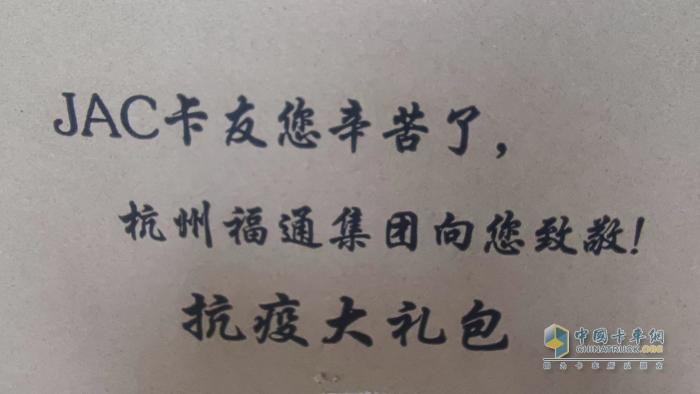 JAC卡友您辛苦了，
杭州福通集团向您致敬！
抗疫大礼包
中国卡车网
CHINATRUCK.ORG
因为卡车所以朋友